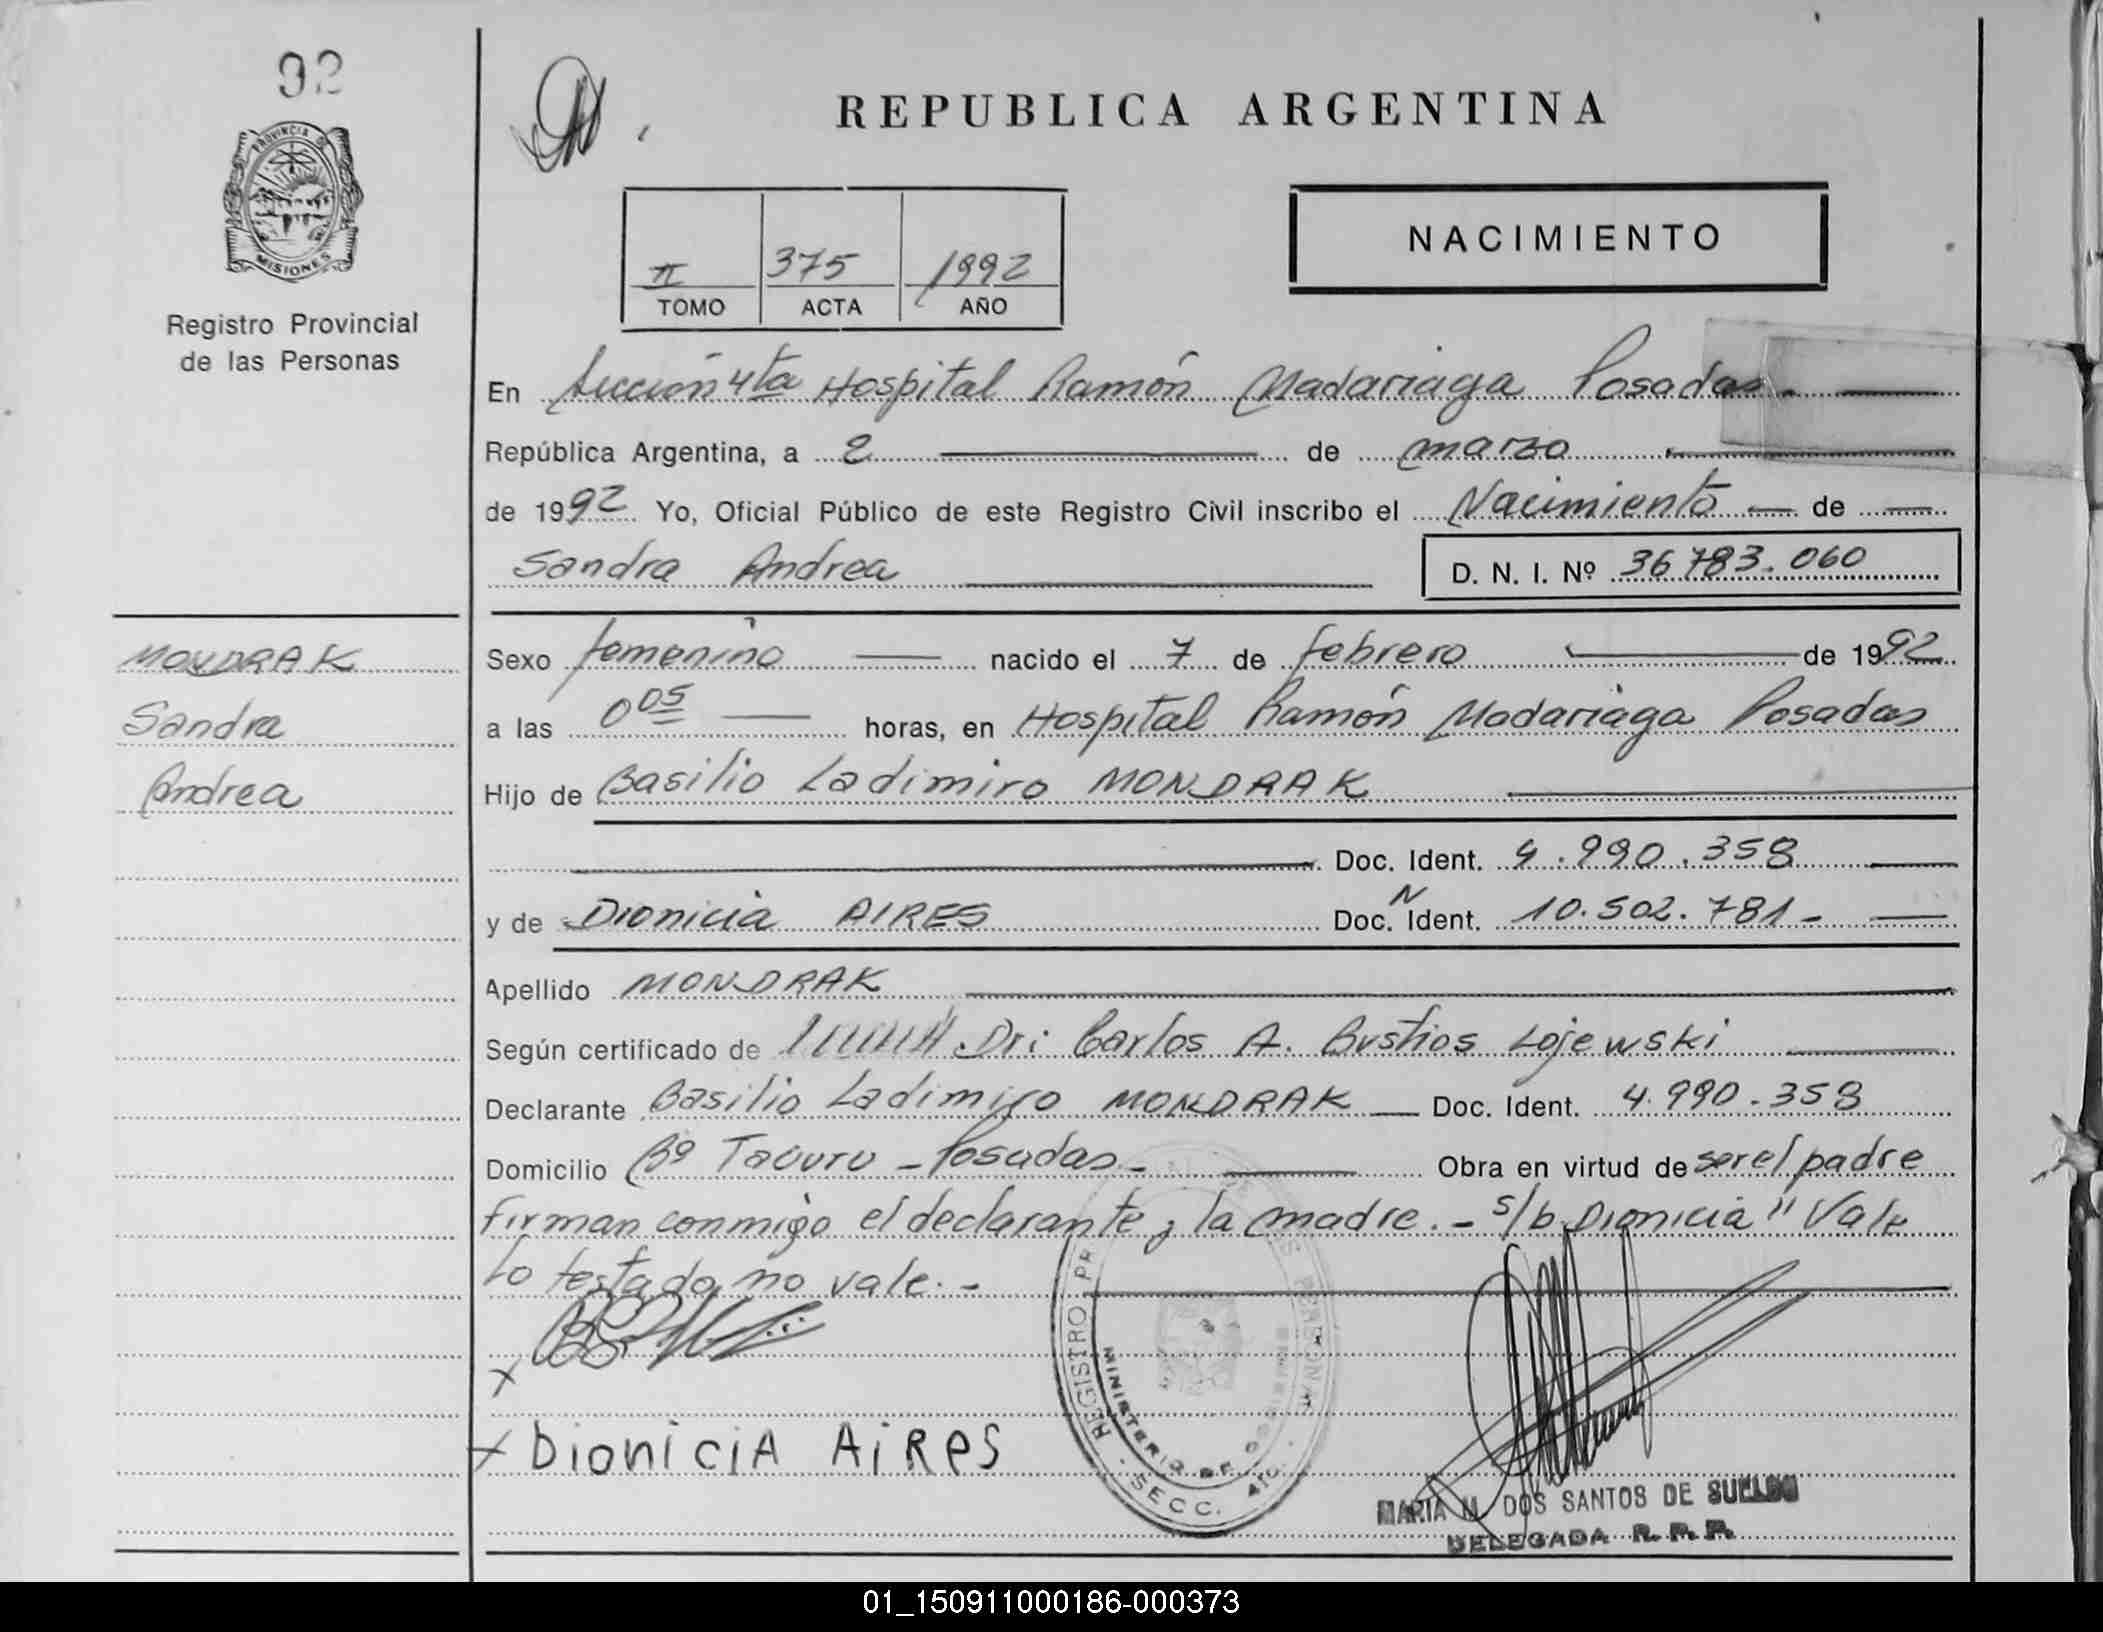 92
PROVINCIA DE
MISIONES
Registro Provincial
de las Personas
REPUBLICA ARGENTINA
II 375 1992
TOMO ACTA AÑO
NACIMIENTO
En Sección 4ta Hospital Ramón Madariaga Posadas.
República Argentina, a 2 de marzo
de 1992 Yo, Oficial Público de este Registro Civil inscribo el Nacimiento de
Sandra Andrea D. N. I. Nº 36 783.060
MONDRAK
Sandra
Andrea
Sexo femenino nacido el 7 de febrero de 1992
a las 0 05 horas, en Hospital Ramón Madariaga Posadas
Hijo de Basilio Ladimiro MONDRAK
Doc. Ident. 4.990.358
y de Dionicia AIRES Doc. N Ident. 10.502.781-
Apellido MONDRAK
Según certificado de Dr: Carlos A. Bustios Lojewski
Declarante Basilio Ladimiro MONDRAK Doc. Ident. 4.990.358
Domicilio Bº Tacuru - Posadas - Obra en virtud de ser el padre
firman conmigo el declarante y la madre. - s/b Dionicia " Vale
Lo testado no vale. -
x
x DioniciA AiRes
REGISTRO PR DE LAS PERSONAS
MINISTERIO DE GOBIERNO
- SECC. 4TO. -
MARIA M. DOS SANTOS DE SUELDO
DELEGADA R. P. P.
01_150911000186-000373